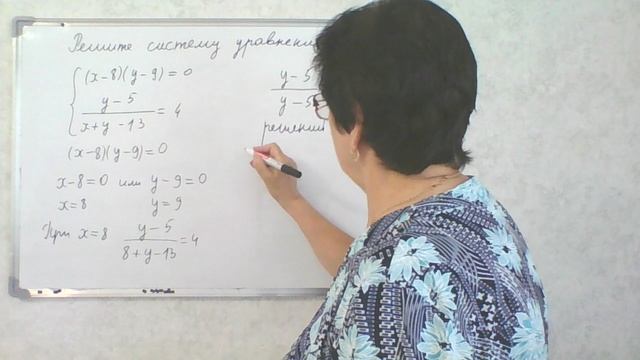 Решите систему уравнений
(x-8)(y-9)=0
y-5/x+y-13=4
(x-8)(y-9)=0
x-8=0 или y-9=0
x=8 y=9
При x=8 y-5/8+y-13=4
y-5/y-5
решений